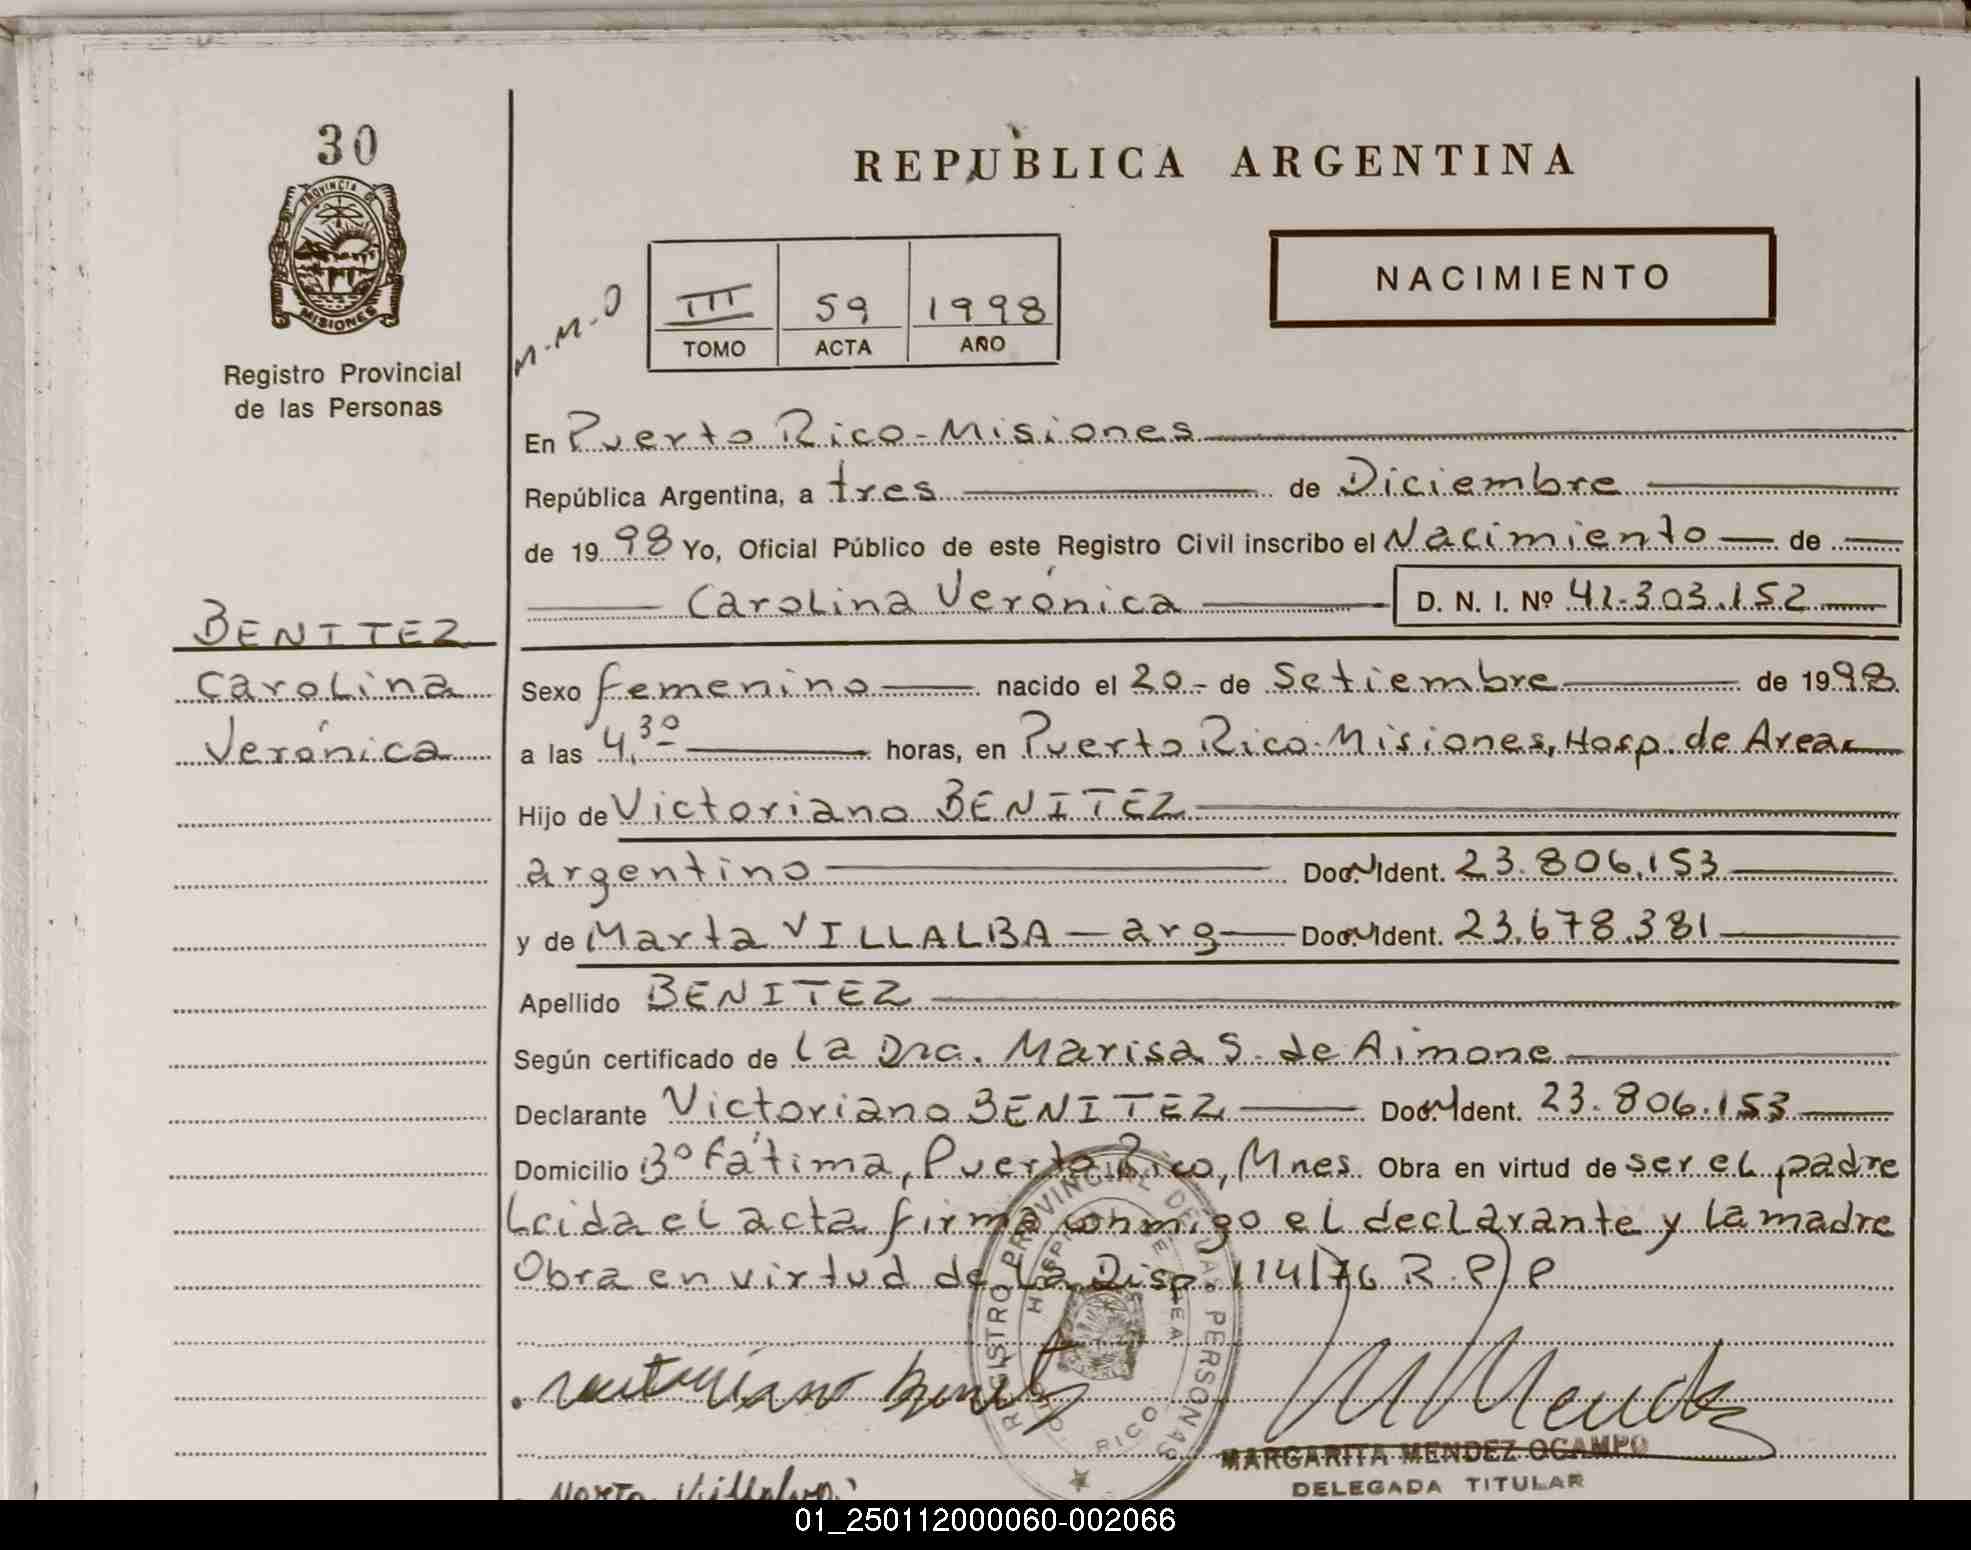 30
PROVINCIA DE
MISIONES
Registro Provincial
de las Personas
REPUBLICA ARGENTINA
NACIMIENTO
M-M-O
III 59 1998
TOMO ACTA AÑO
En Puerto Rico-Misiones
República Argentina, a tres de Diciembre
de 19 98 Yo, Oficial Público de este Registro Civil inscribo el Nacimiento de
Carolina Verónica D. N. I. Nº 41.303.152
BENITEZ
Carolina
Verónica
Sexo femenino nacido el 20 - de Setiembre de 1998
a las 4,30 horas, en Puerto Rico-Misiones, Hosp. de Area
Hijo de Victoriano BENITEZ
argentino Doc. Ident. 23.806.153
y de Marta VILLALBA - arg Doc. Ident. 23.678.381
Apellido BENITEZ
Según certificado de La Dra. Marisa S. de Aimone
Declarante Victoriano BENITEZ Doc. Ident. 23.806.153
Domicilio Bº Fátima, Puerto Rico, Mnes. Obra en virtud de ser el padre
Leida el acta firma conmigo el declarante y la madre
Obra en virtud de la Disp. 114/76 R.P.P
REGISTRO PROVINCIAL DE LAS PERSONAS
HOSPITAL DE AREA
RICO
MARGARITA MENDEZ OCAMPO
DELEGADA TITULAR
01_250112000060-002066